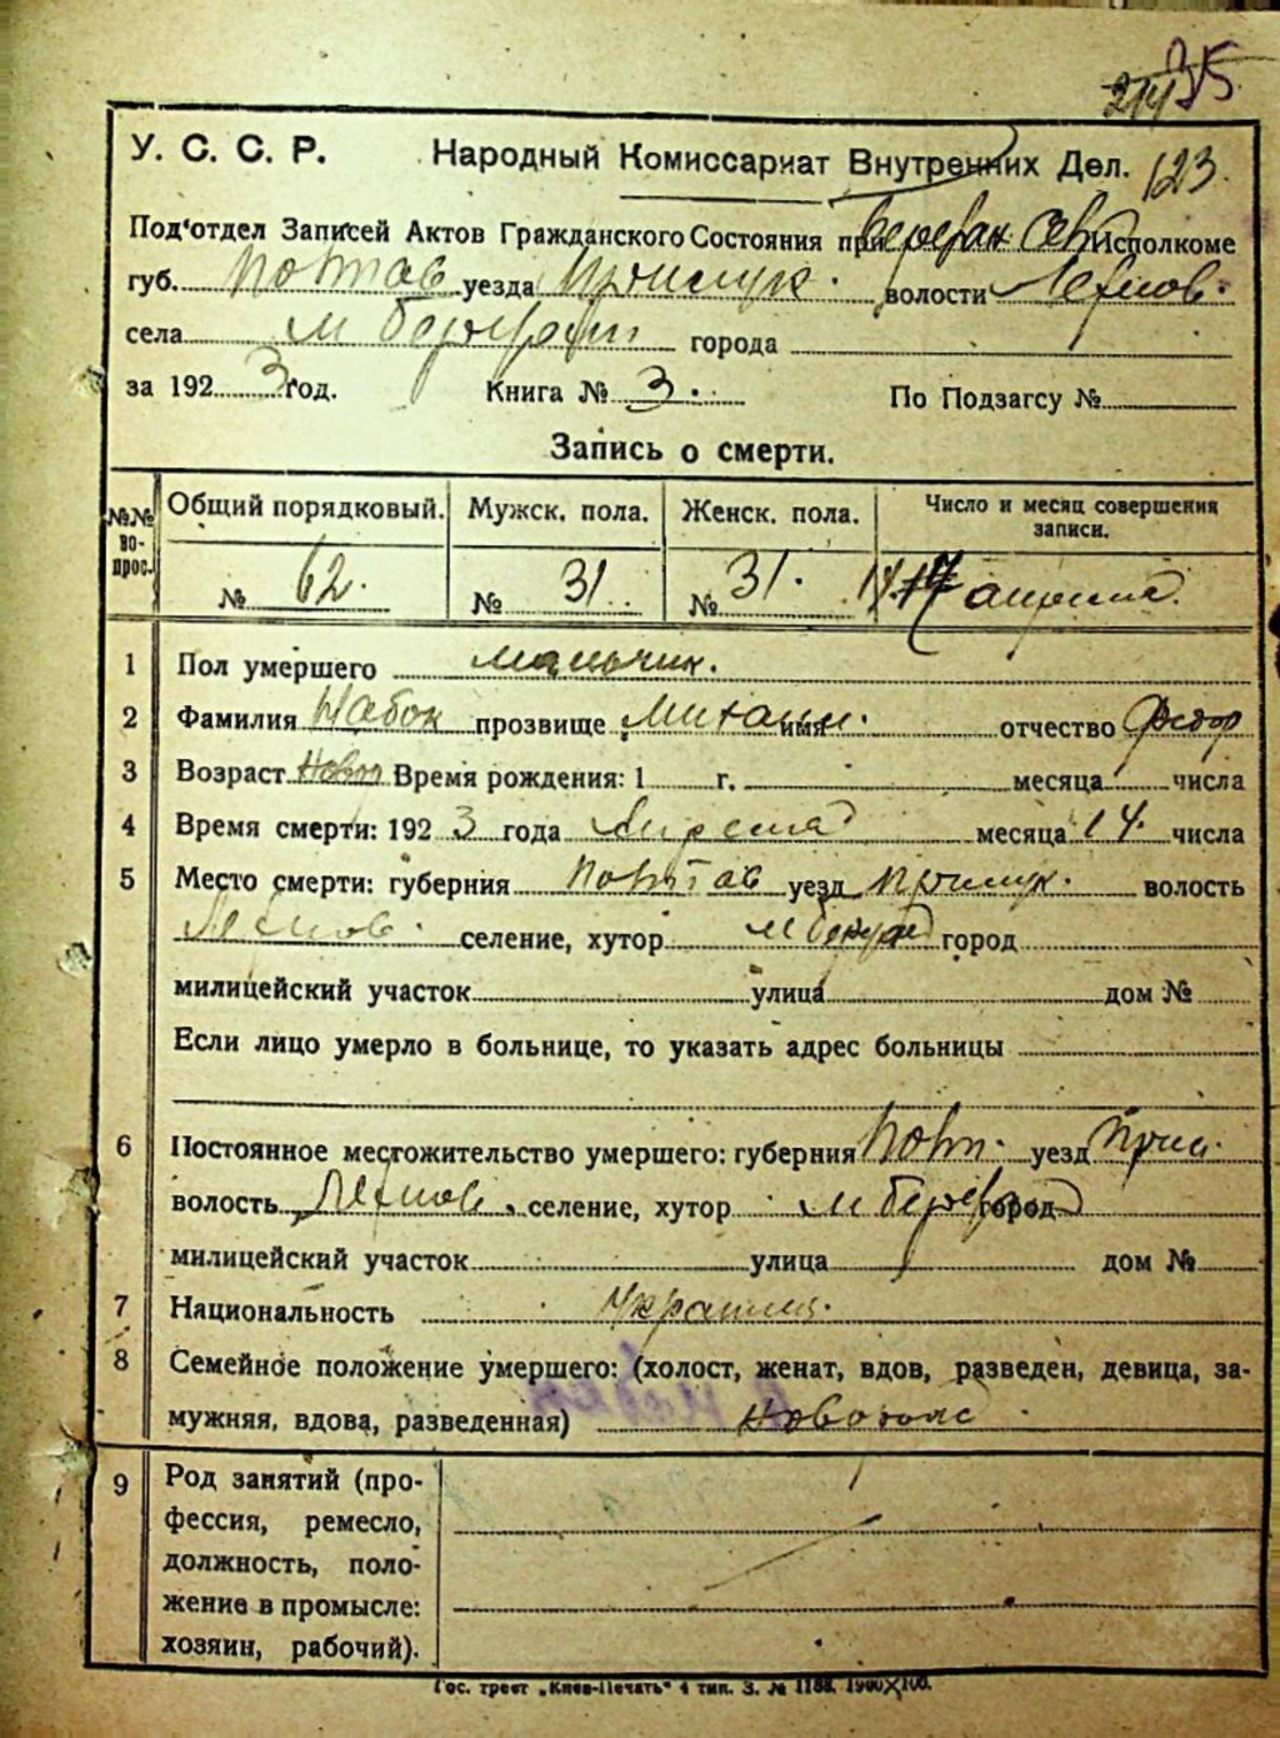 35
У. С. С. Р. Народный Комиссариат Внутренних Дел. 123.
Под'отдел Записей Актов Гражданского Состояния при Исполкоме
губ. Полтав уезда Прилук. волости
села м города
за 1923 год. Книга № 3. По Подзагсу №
Запись о смерти.
№№ вопрос. Общий порядковый. Мужск. пола. Женск. пола. Число и месяц совершения записи.
№ 62. № 31 № 31. 14 апреля.
1 Пол умершего мальчик.
2 Фамилия Набок прозвище Михаил имя отчество Федор
3 Возраст Новор Время рождения: 1 г. месяца числа
4 Время смерти: 1923 года Апреля месяца 14. числа
5 Место смерти: губерния Полтав уезд Прилук. волость
селение, хутор м город
милицейский участок улица дом №
Если лицо умерло в больнице, то указать адрес больницы
6 Постоянное местожительство умершего: губерния Полт. уезд Прил.
волость селение, хутор м город
милицейский участок улица дом №
7 Национальность Украинц.
8 Семейное положение умершего: (холост, женат, вдов, разведен, девица, за-
мужняя, вдова, разведенная)
9 Род занятий (про-
фессия, ремесло,
должность, поло-
жение в промысле:
хозяин, рабочий).
Гос. трест „Киев-Печать" 4 тип. З. № 1188. 1900×100.